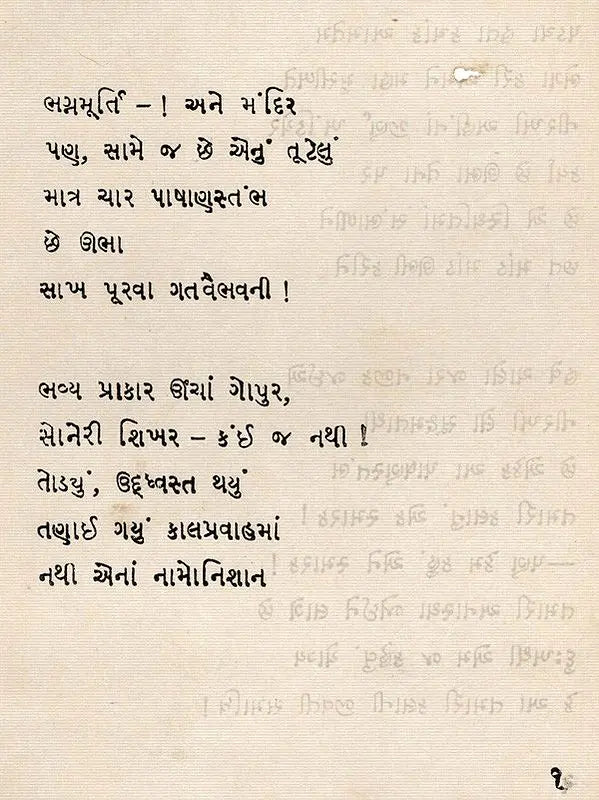 ભગ્નમૂર્તિ – ! અને મંદિર
પણ, સામે જ છે એનું તૂટેલું
માત્ર ચાર પાષાણસ્તંભ
છે ઊભા
સાખ પૂરવા ગતવૈભવની !
ભવ્ય પ્રાકાર ઊંચાં ગોપુર,
સોનેરી શિખર – કંઈ જ નથી !
તોડયું, ઉદ્ધ્વસ્ત થયું
તણાઈ ગયું કાલપ્રવાહમાં
નથી એનાં નામોનિશાન
૧